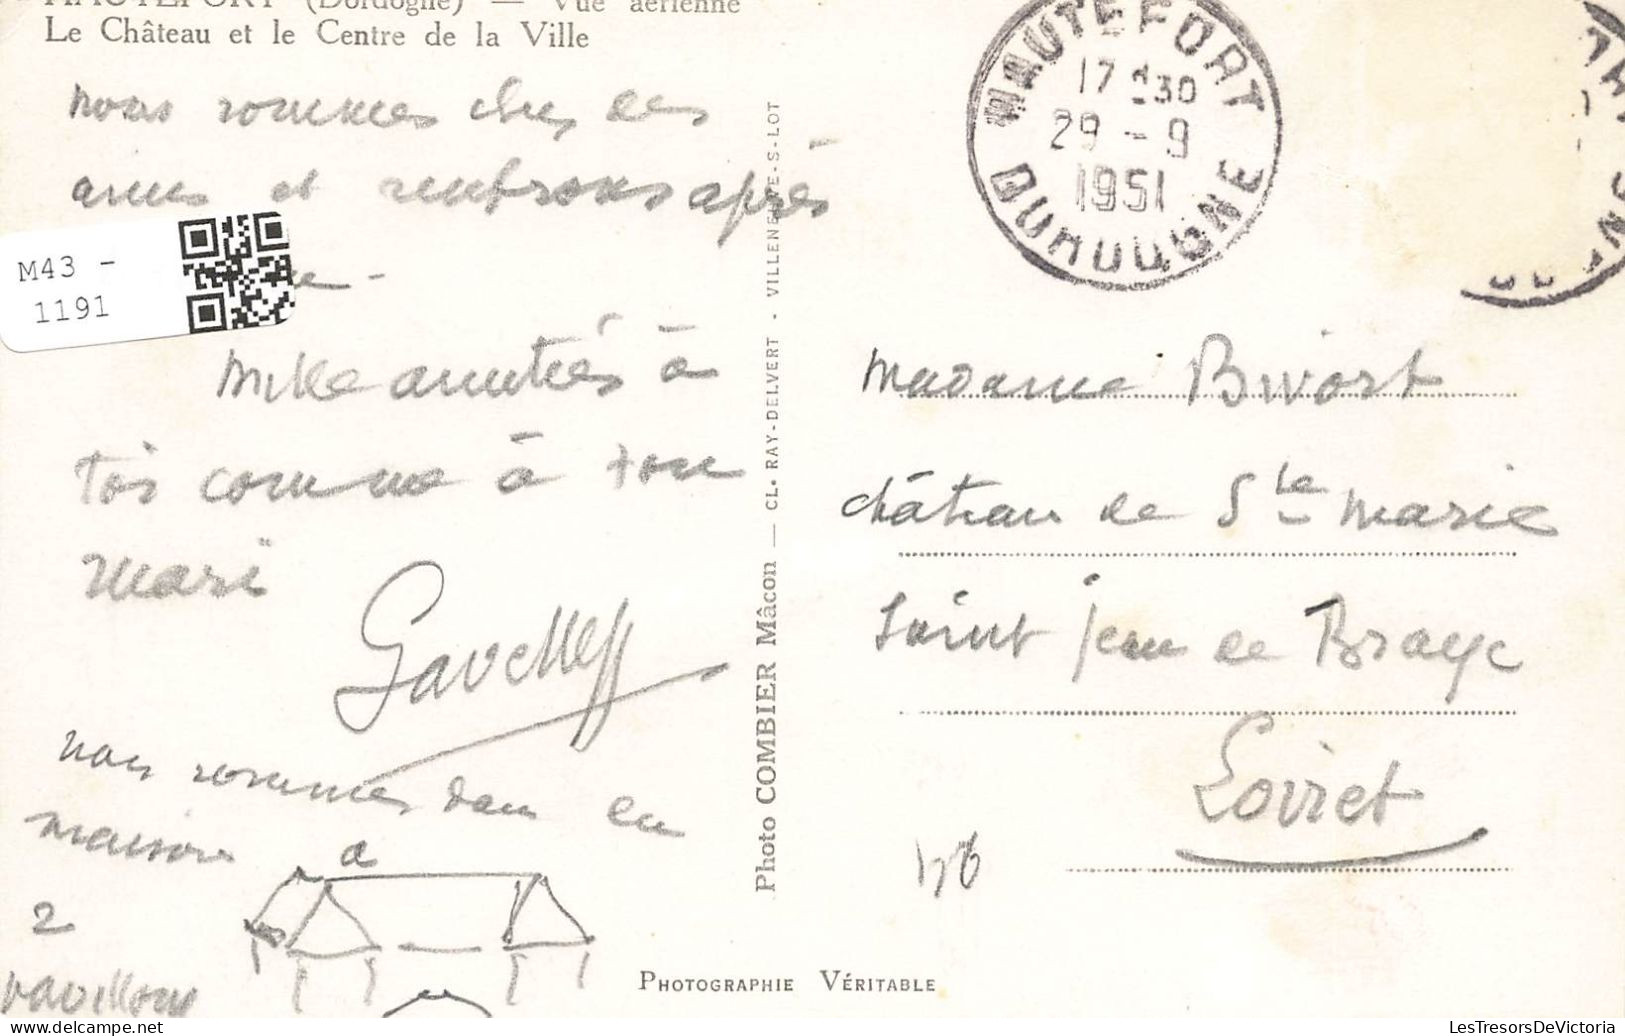 HAUTEFORT (Dordogne) — Vue aérienne
Le Château et le Centre de la Ville
nous sommes chez des
amis et rentrons après
Mille amitiés à
toi comme à ton
mari
nous sommes dans la
maison à
2
pavillons
M43 -
1191
Photo COMBIER Mâcon — CL. RAY-DELVERT - VILLENEUVE-S-LOT
HAUTEFORT
17 H 30
29 - 9
1951
DORDOGNE
Madame Bivort
château de Ste Marie
Saint Jean de Braye
Loiret
PHOTOGRAPHIE VÉRITABLE
delcampe.net
LesTresorsDeVictoria